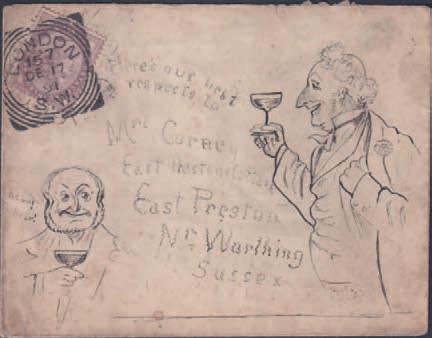 LONDON
15·7
DE 17
91
S.W.
Here's our best
respects to
Mrs Curvey
East
East Preston
Nr Worthing
Sussex